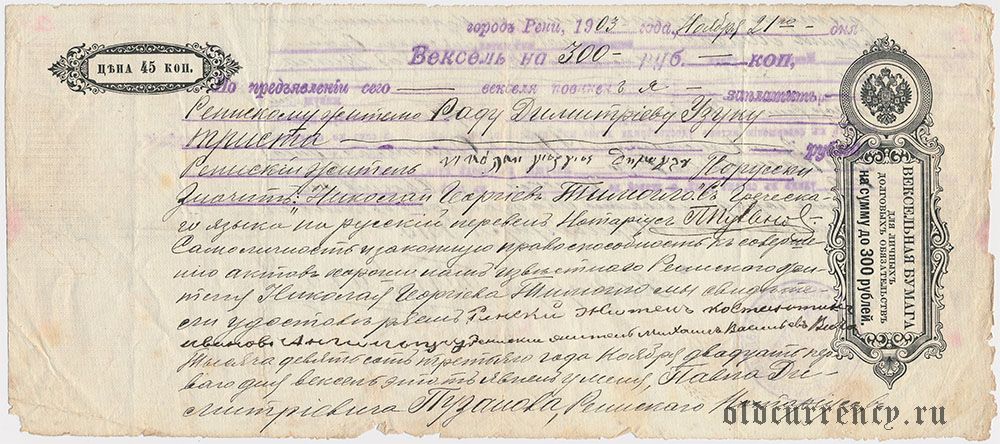 городъ Рени, 1903 года, Ноября 21го дня
ЦѢНА 45 КОП.
Вексель на 300 руб. — коп,
По предъявленіи сего — векселя повиненъ я — заплатить
Ренскому жителю Раду Димитріеву Узуну
триста — рублей
Ренскій житель По русски
значитъ: "Николай Георгіевъ съ греческа-
го языка на русскій перевелъ Нотаріусъ
Самоличность и законную правоспособность къ соверше-
нію актовъ хорошо намъ извѣстнаго Ренскаго жи-
теля Николая Георгіева мы свидѣтел
Ренски жителъ
Михаилъ Васильевъ
Тысяча девятьсотъ третьяго года Ноября двадцать пер-
ваго дня вексель этотъ явленъ у меня Павла Ди-
митріевича Пузанова, Ренскаго Нотаріуса
ВЕКСЕЛЬНАЯ БУМАГА
ДЛЯ ЛИЧНЫХЪ
ДОЛГОВЫХЪ ОБЯЗАТЕЛЬСТВЪ
на сумму до 300 рублей.
oldcurrency.ru